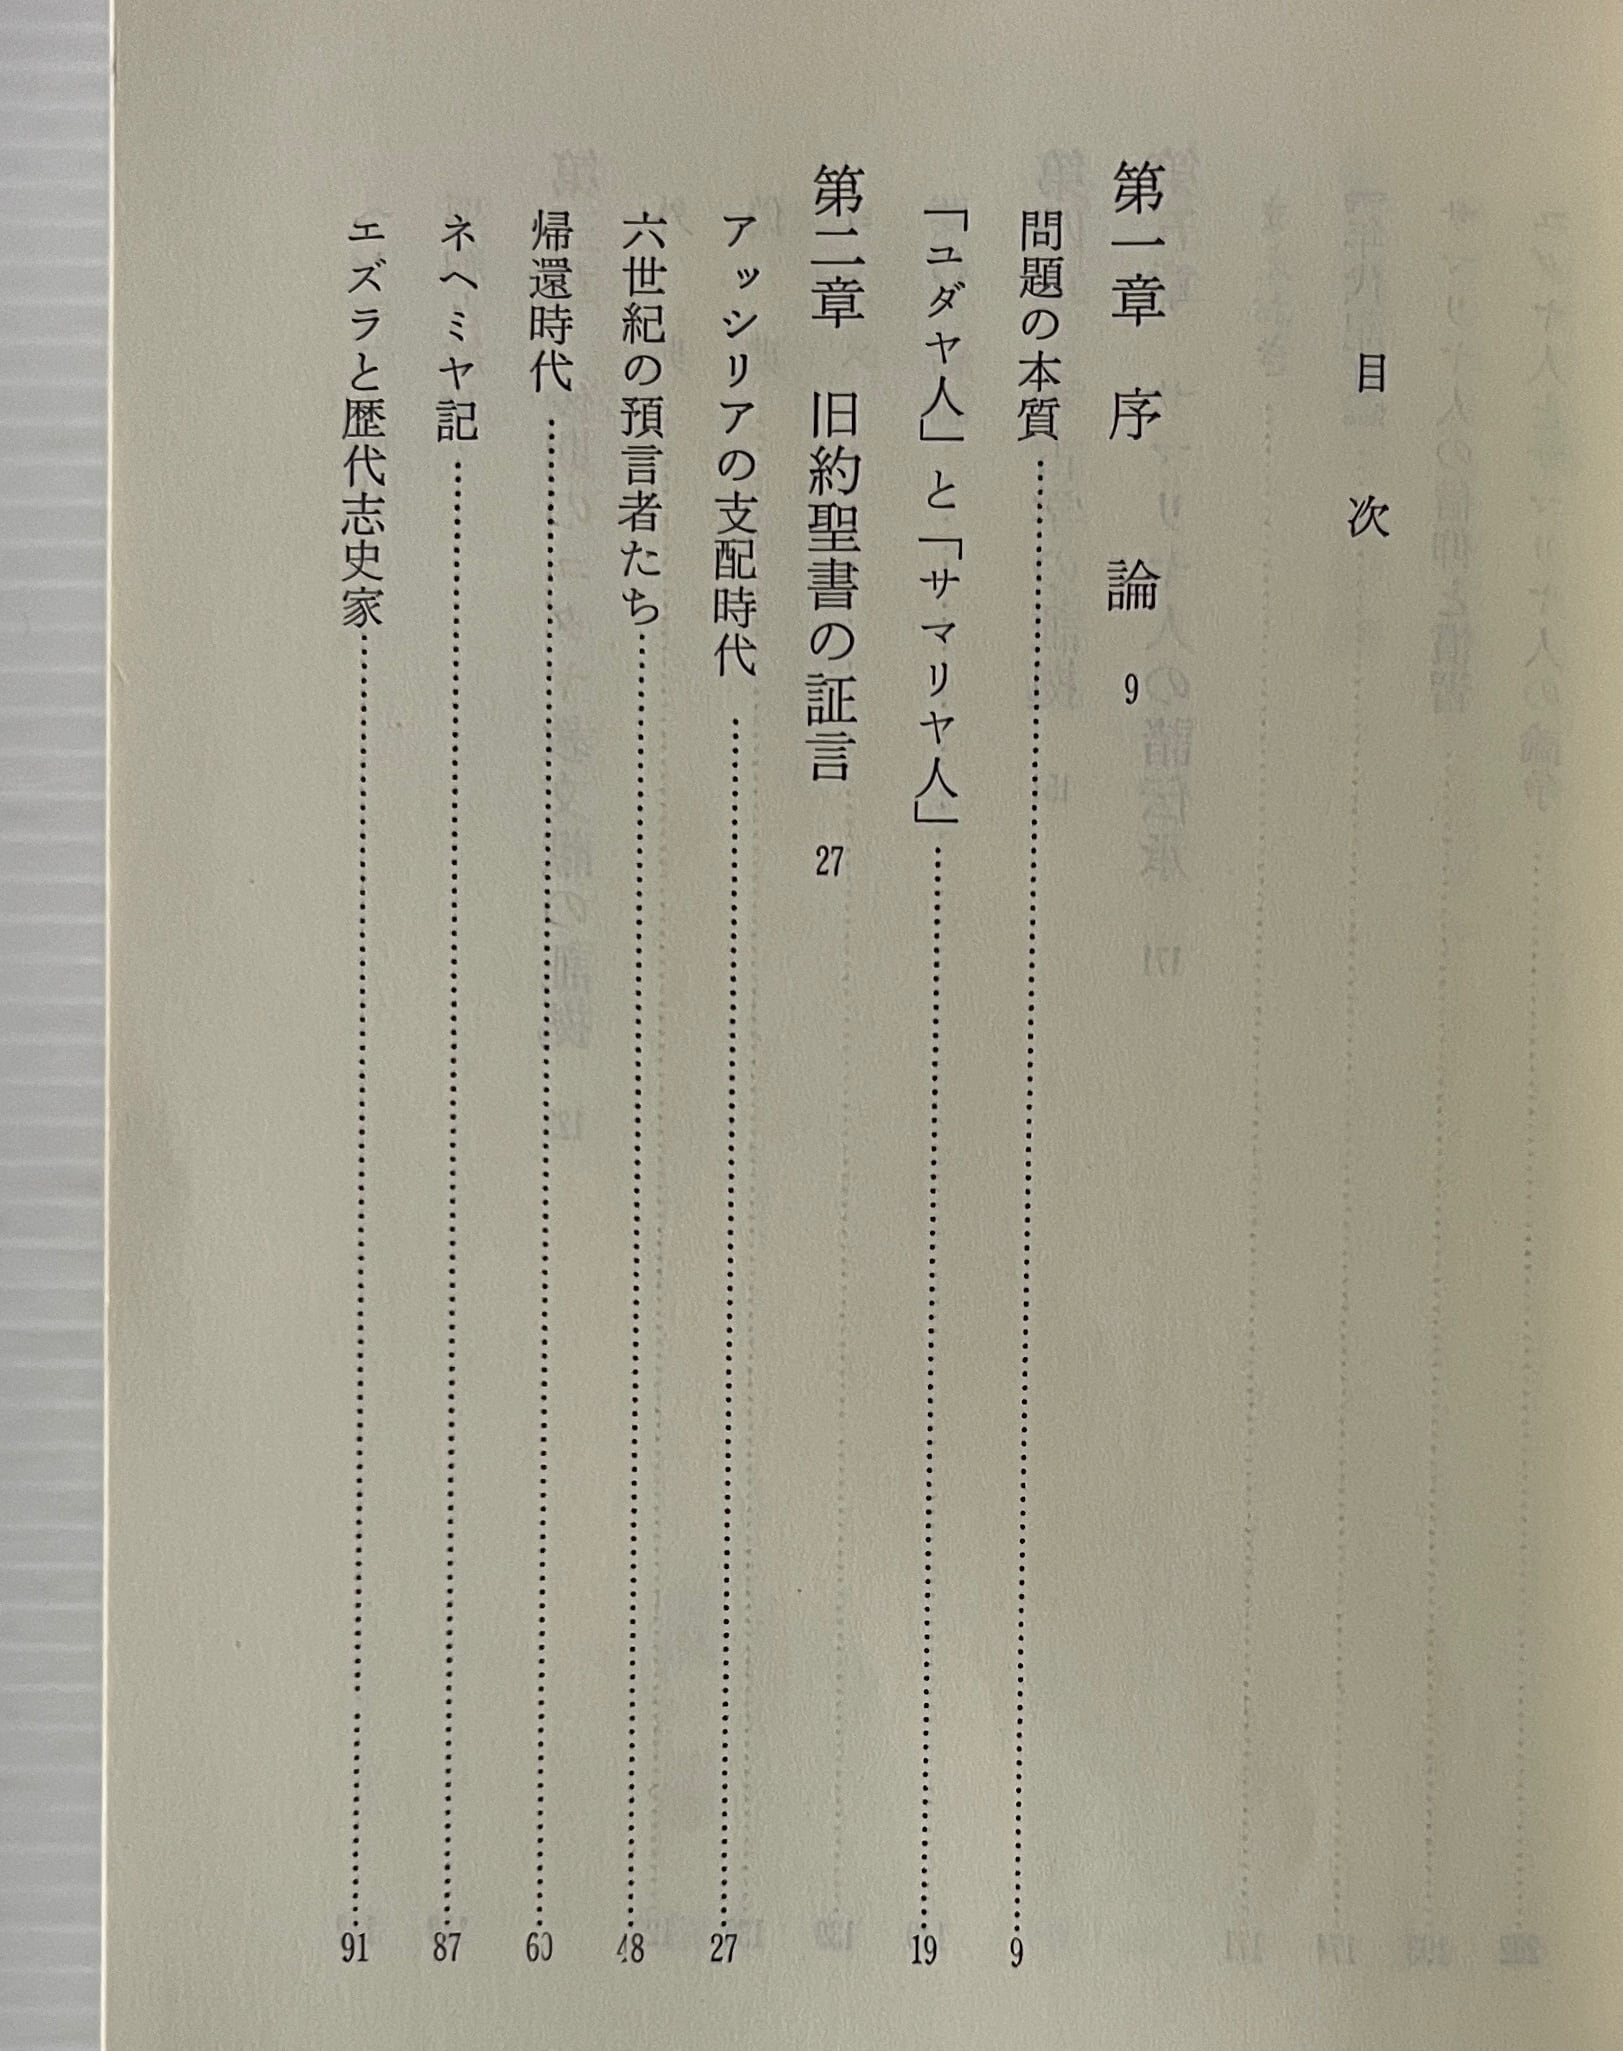 目次
第一章 序論 9
問題の本質……9
「ユダヤ人」と「サマリヤ人」……19
第二章 旧約聖書の証言 27
アッシリアの支配時代……27
六世紀の預言者たち……48
帰還時代……60
ネヘミヤ記……87
エズラと歴代志史家……91